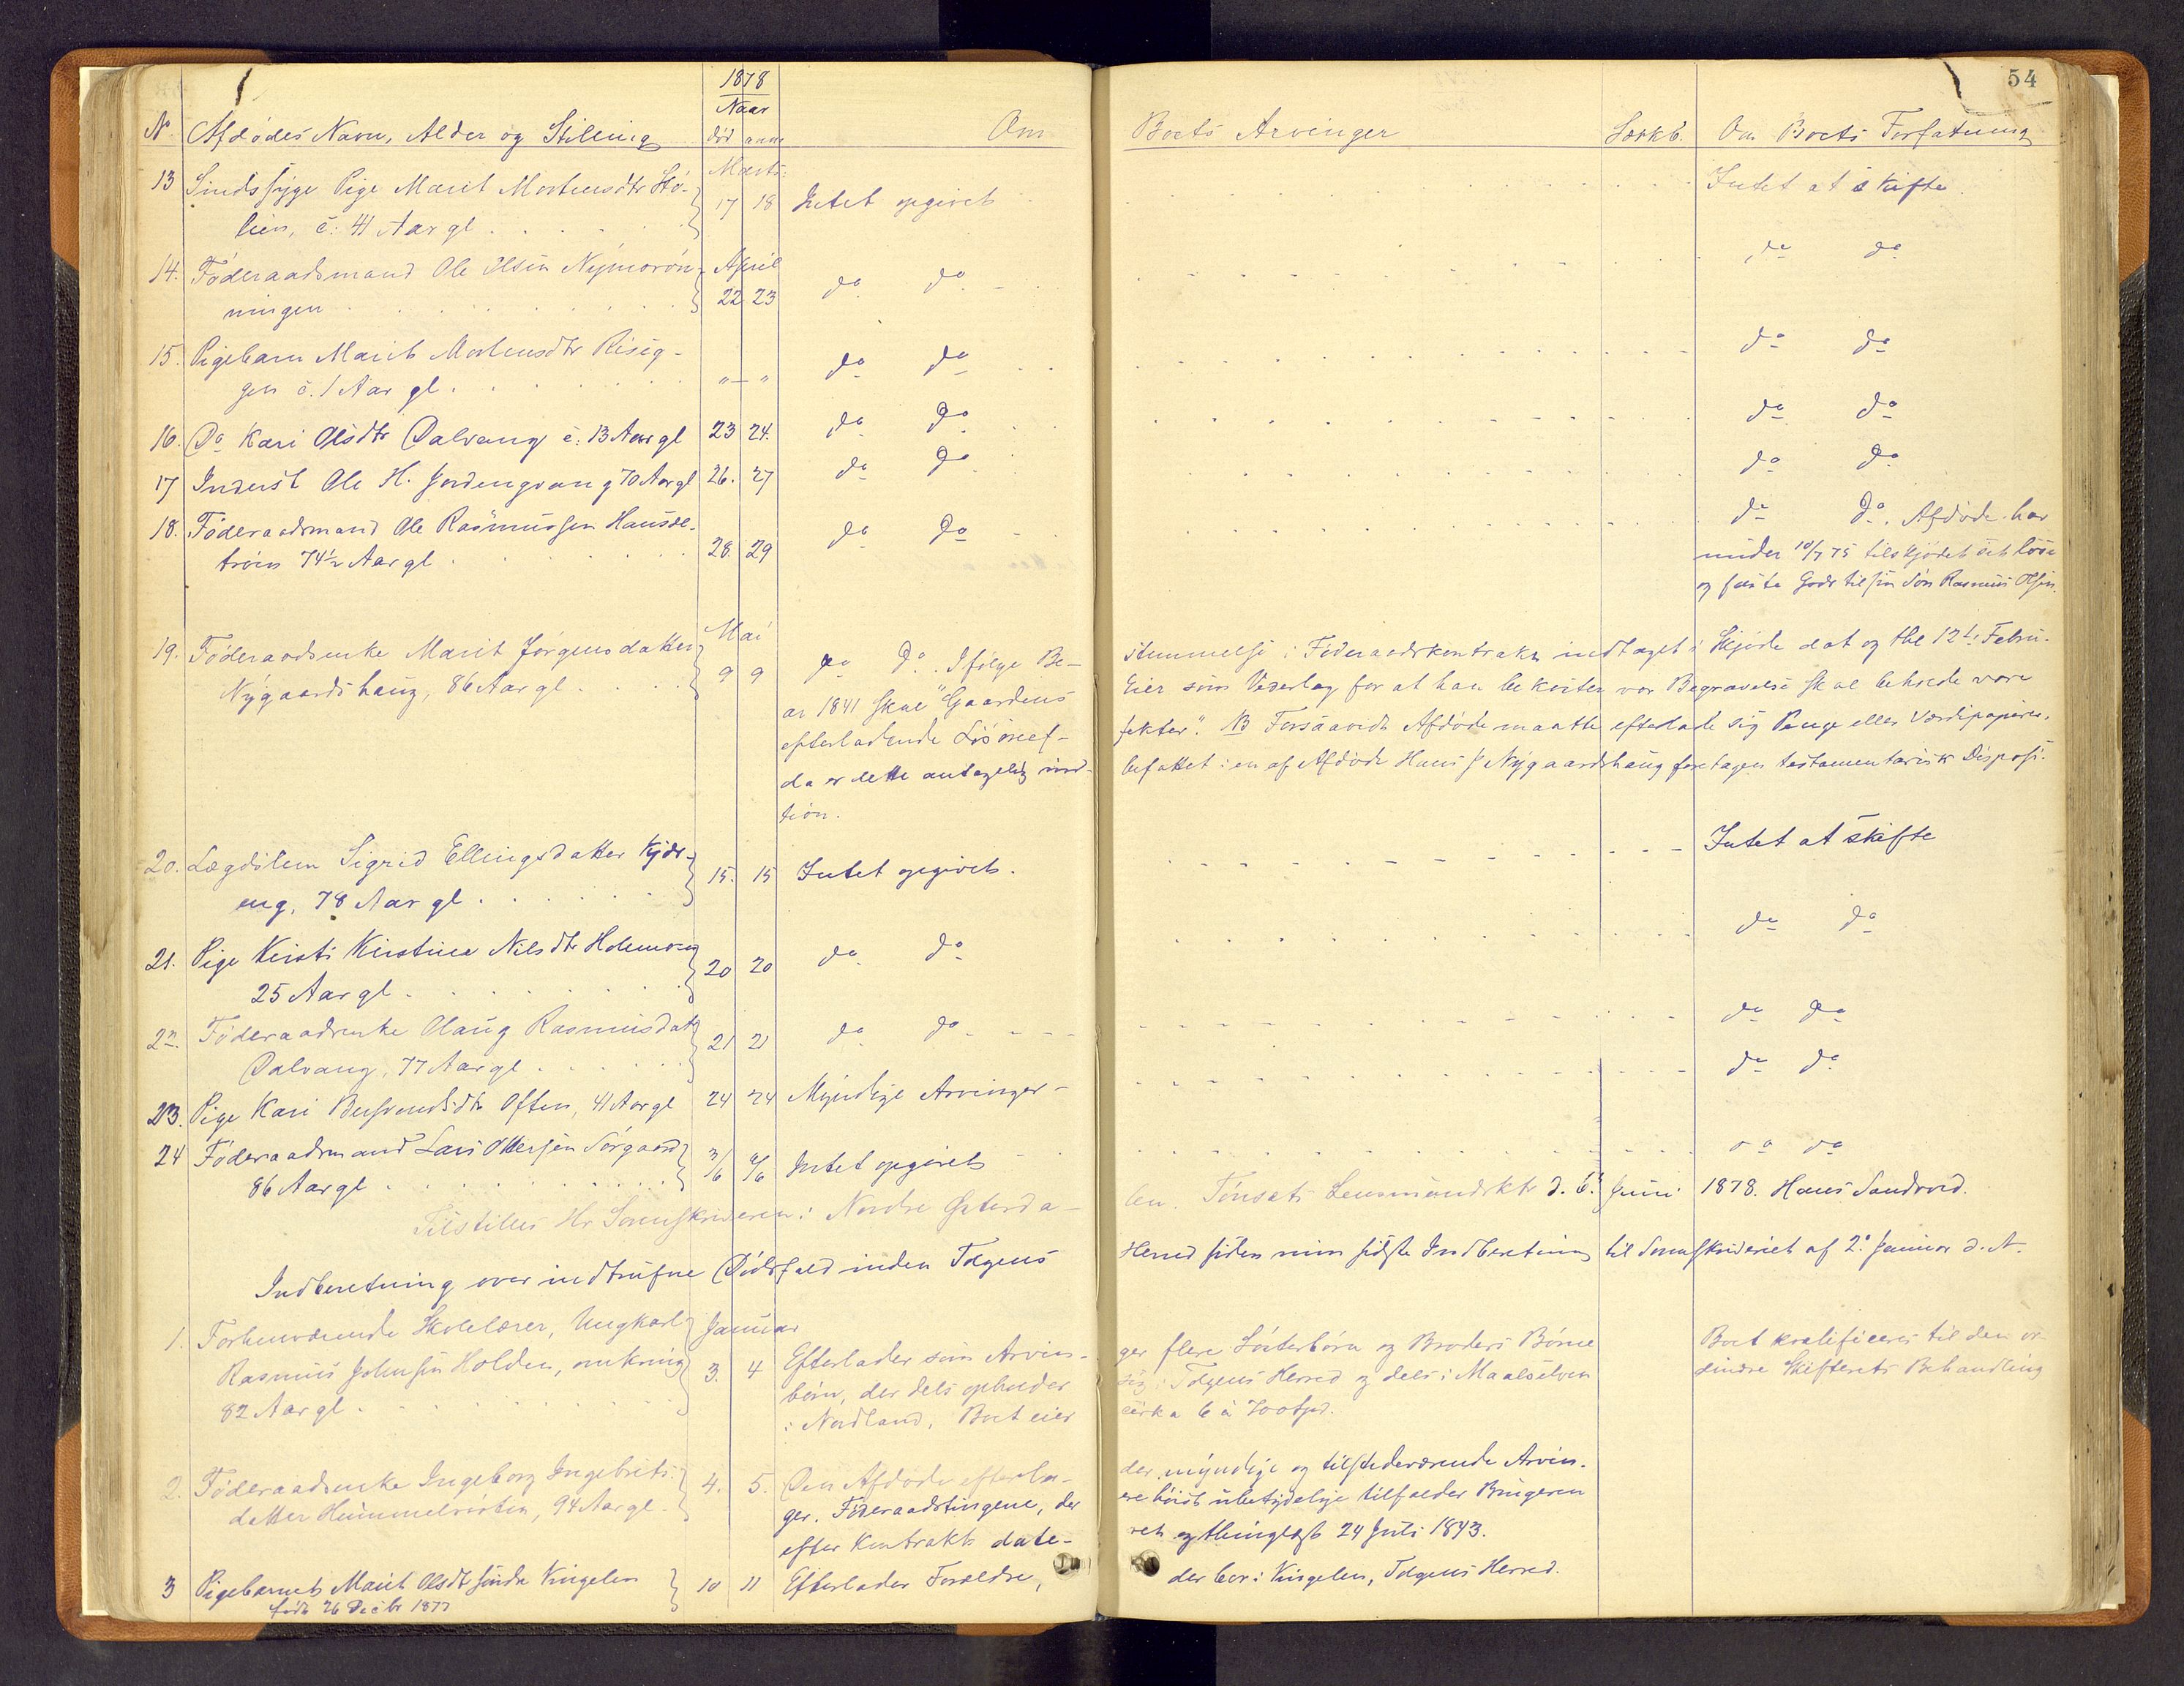 54
1878
Naar
No. Afdødes Navn, Alder og Stilling død anm Om Boets Arvinger Særkb. Om Boets Forfatning
Marts
13 Sindssyge Pige Marit Mortensdtr Stø-
lien, c: 41 Aar gl. 17 18 Intet opgivet Intet at skifte.
14. Føderaadsmand Ole Olsen Nymorøn- April
ningen 22 23 do do do do
15. Pigebarn Marit Mortensdtr Risig-
gen c. 1 Aar gl. " — " do do do do
16. Do Kari Olsdtr Dalvang c: 13 Aar gl 23 24. do do do do
17 Inderst Ole H. Jordengvang 70 Aar gl 26. 27 do do do do
18. Føderaadsmand Ole Rasmussen Hansæ-
trøen 74½ Aar gl. 28. 29 do do do do. Afdøde har
under 10/7 75 tilskjødet sit løse
og faste Gods til sin Søn Rasmus Olsen.
Mai
19. Føderaadsenke Marit Jørgensdatter
Nygaardshaug, 86 Aar gl. 9 9 do do. Ifølge Be-
stemmelse i Føderaadskontrakt indtaget i Skjøde dat og thl 12te Febru-
ar 1841 skal "Gaardens
Eier som Vederlag for at han bekoster vor Begravelse skal beholde vore
efterladende Løsøreef-
fekter." NB Forsaavidt Afdøde maatte efterlade sig Penge eller Værdipapirer,
da er dette antagelig ind-
befattet i en af Afdøde Hans J Nygaardshaug foretagen testamentarisk Disposi-
tion.
20. Lægdslem Sigrid Ellingsdatter Kjør-
eng, 78 Aar gl. 15. 15 Intet opgivet. Intet at skifte
21. Pige Kirsti Kirstine Nilsdtr Holemoen
25 Aar gl. 20 20 do do do do
22. Føderaadsenke Olaug Rasmusdatt
Dalvang, 77 Aar gl. 21 21 do do do do
23. Pige Kari Bersvendsdtr Often, 41 Aar gl 24 24 Myndige Arvinger do do
24 Føderaadsmand Lars Ottersen Sørgaard
86 Aar gl. 3/6 4/6 Intet opgivet do do
Tilstilles Hr Sorenskriveren i Nordre Østerda-
len. Tønsets Lensmandsktr d. 6. Juni 1878. Hans Sandvold.
Indberetning over indtrufne Dødsfald inden Tolgens
Herred siden min sidste Indberetning til Sorenskriveriet af 2. Januar d. A.
1. Forhenværende Skolelærer, Ungkarl Januar
Rasmus Johnsen Holden, omkring 3. 4 Efterlader som Arvin-
82 Aar gl.
ger flere Søsterbørn og Broders Børne
børn, der dels opholder
sig i Tolgens Herred og dels i Maalselven
i Nordland. Boet eier
cirka 6 à 700 Spd.
Boet kvalificeres til den or-
dinære Skifterets Behandling
2. Føderaadsenke Ingeborg Ingebrets-
datter Hummelvolden, 94 Aar gl. 4. 5. Den Afdøde efterla-
der myndige og tilstedeværende Arvin-
ger. Føderaadstingene, der
ere høist ubetydelige tilfalder Brugeren
efter Kontrakt date-
ret og thinglyst 24 Juli 1843.
3 Pigebarnet Marit Olsdt søndre Vingelen
født 26 Decbr 1877 10 11 Efterlader Forældre,
der bor i Vingelen, Tolgens Herred.